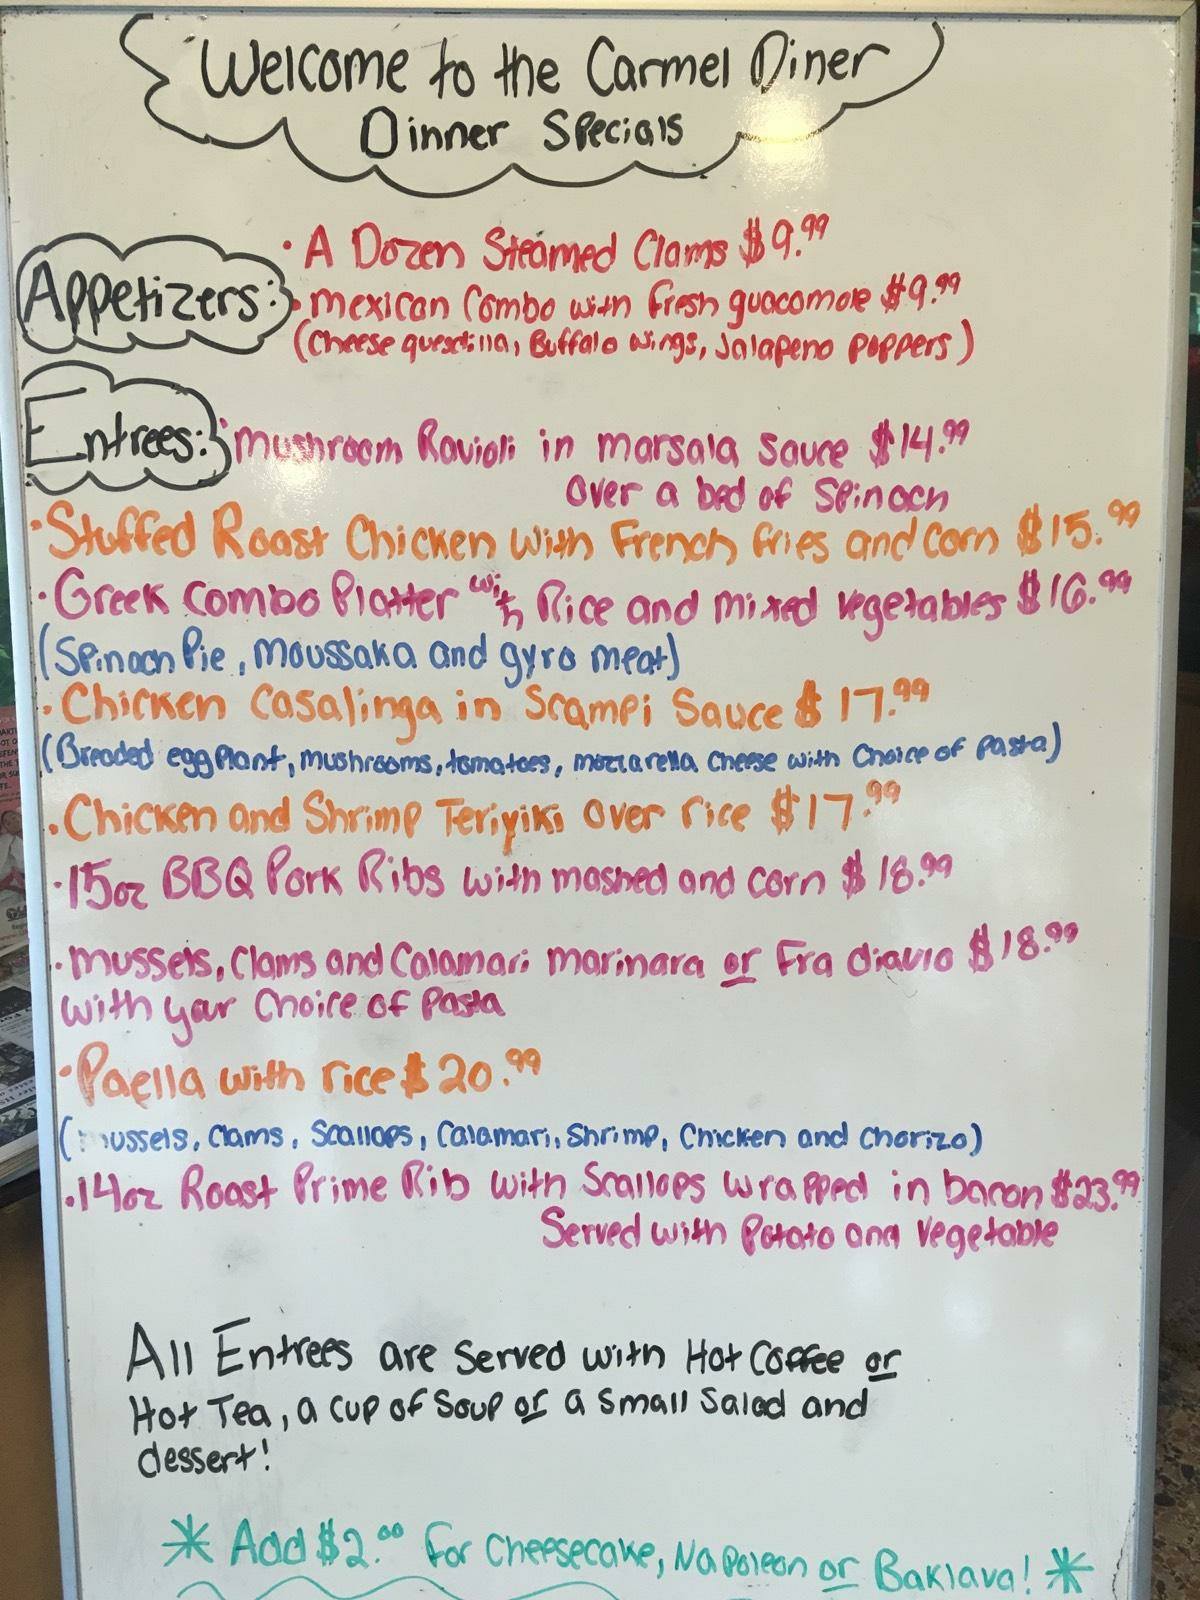 Welcome to the Carmel Diner
Dinner Specials
Appetizers:
• A Dozen Steamed Clams $9.99
• Mexican Combo with fresh guacamole $9.99
(Cheese quesdilla, Buffalo wings, Jalapeno poppers)
Entrees:
• Mushroom Ravioli in marsala sauce $14.99
over a bed of Spinach
• Stuffed Roast Chicken with French fries and corn $15.99
• Greek Combo Platter with Rice and mixed vegetables $16.99
(Spinach Pie, Moussaka and gyro meat)
• Chicken Casalinga in Scampi Sauce $17.99
(Breaded eggplant, mushrooms, tomatoes, mozzarella cheese with choice of pasta)
• Chicken and Shrimp Teriyiki over rice $17.99
• 15oz BBQ Pork Ribs with mashed and corn $18.99
• Mussels, Clams and Calamari marinara or Fra diavlo $18.99
with your choice of Pasta
• Paella with rice $20.99
(mussels, Clams, Scallops, Calamari, Shrimp, Chicken and Chorizo)
• 14oz Roast Prime Rib with Scallops wrapped in bacon $23.99
Served with Potato and vegetable
All Entrees are served with Hot Coffee or
Hot Tea, a cup of soup or a small salad and
dessert!
* Add $2.00 for Cheesecake, Napoleon or Baklava! *